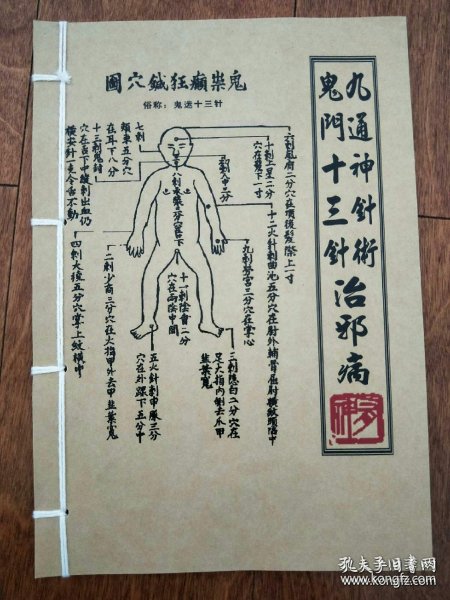 九通神針術
鬼門十三針治邪病
鬼祟癲狂鍼穴圖
俗称：鬼迷十三针
六刺風府二分穴在項後髮際上一寸
十刺上星二分
穴在髮下一寸
十二火針刺曲池五分穴在肘外輔骨屈肘橫紋頭陷中
九刺勞宮二分穴在掌心
三刺隱白二分穴在
足大指內側去爪甲
韮葉寬
十一刺陰會二分
穴在兩陰中間
五火針刺申脈三分
穴在外踝下五分中
二刺少商三分穴在大指甲外去甲韮葉寬
四刺大後五分穴掌上紋橫中
七刺
頰車五分穴
在耳下八分
十三刺鬼封
穴在舌下中縫刺出血仍
橫安針一克令舌不動
孔夫子旧書网
www.kongfz.com